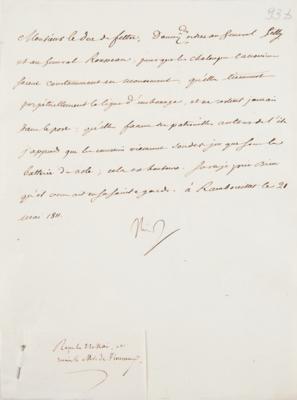 93b
Monsieur le duc de feltre, Donnez des ordres au General Gilly
et au General Rousseau, pour que les chaloupes canonnieres
soient constamment en mouvement, qu'elles tiennent
perpetuellement la ligne d'embossage, et ne restent jamais
dans le port; qu'elles fassent des patrouilles autour de l'île
j'apprends que les ennemis viennent sonder jusque sous la
batterie de ; cela est honteux. Sur ce, je prie Dieu
qu'il vous ait en sa sainte garde. à Rambouillet le 21
mai 1811.
Np
Reçu le 22 Mai, et
le Mis de